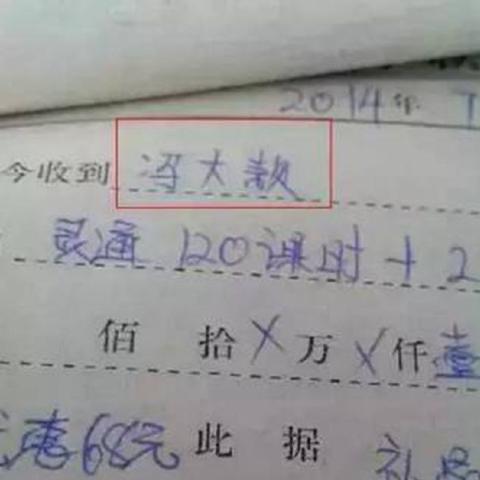 2014年 7
今收到 冯大款
灵通 120课时+2
佰 拾 X 万 X 仟 壹
优惠68元 此 据